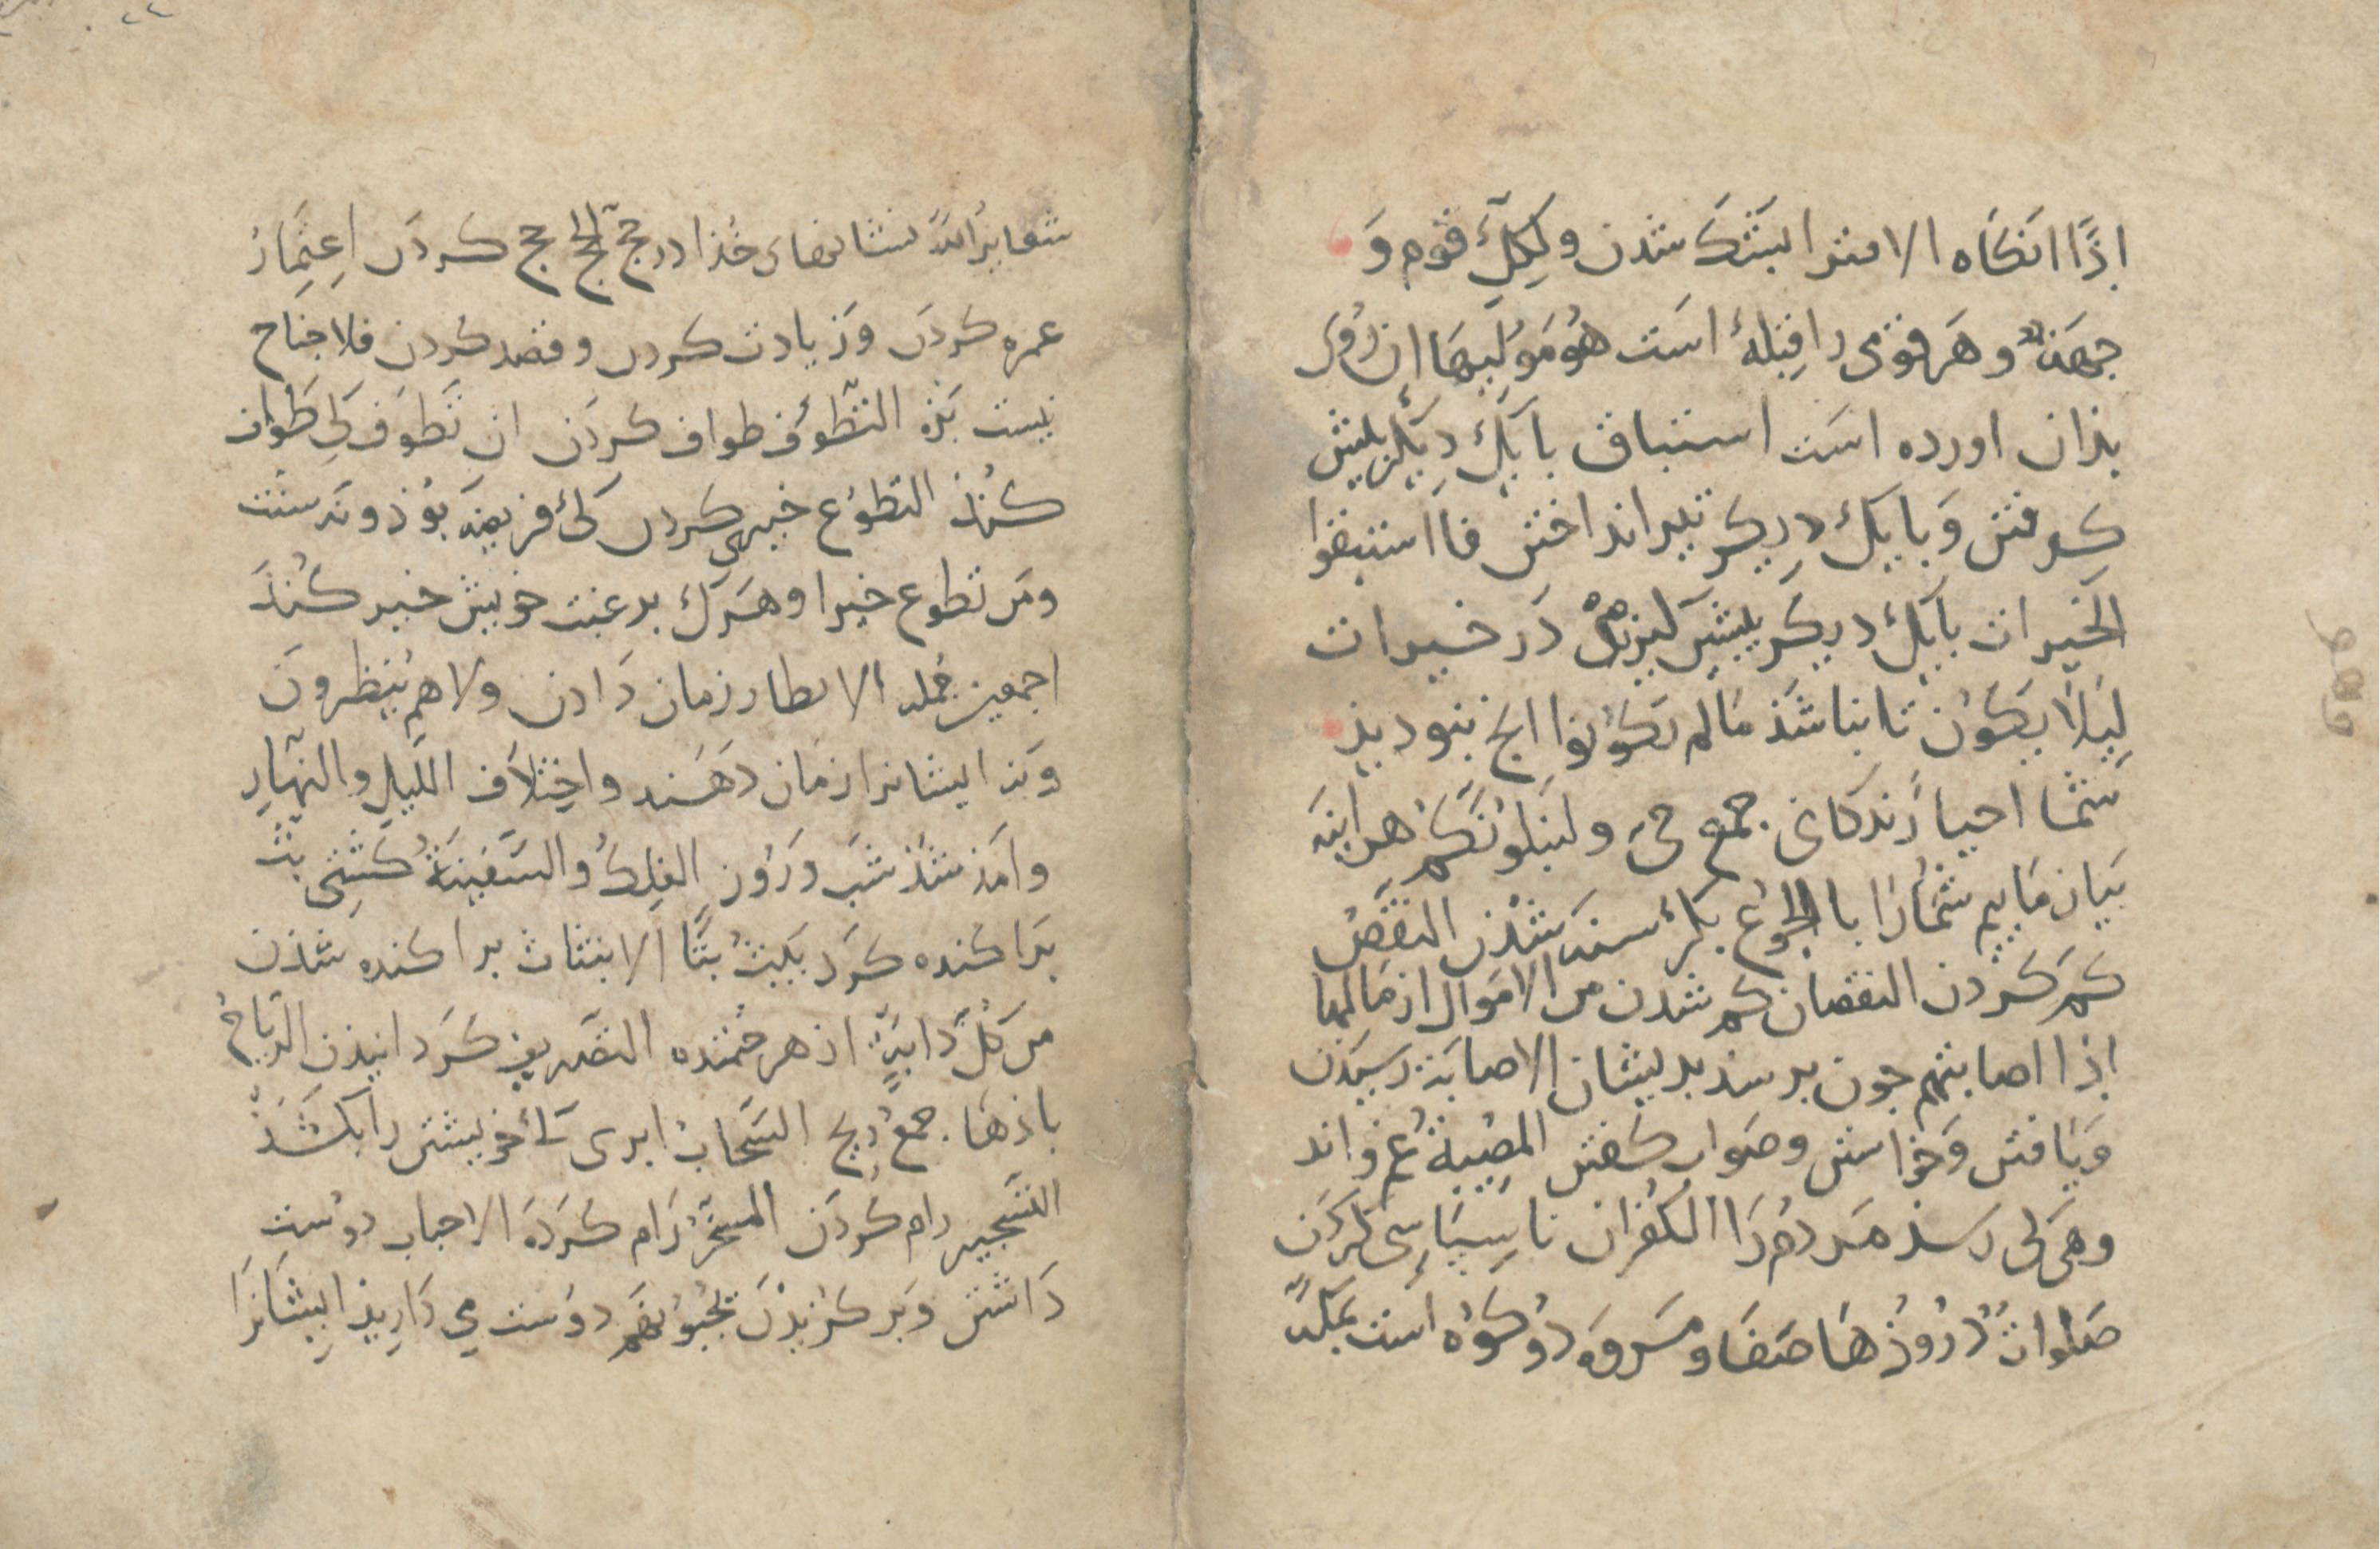 اِذًا انكَاه الامترا بشَك شدن ولِكلٍّ قوم وَ
جهة وهَر قومى را قِبلهٔ است هُو مُوَلِّيها اِن رُوى
بذان اورده است استباق با يَكْ دِيكر بيش
كِرفتن وَبا يك دِيكر تير انداختن فاستبقوا
الخيرات با يَكْ ديكَر بيشى كيريذ دَر خيرات
لِيَلّا يكوُن تا نباشَذ مَا لم تكوُنوا انج نبوديذ
شما احيا زندكان جمع حىّ ولنبلونّكم هر اينه
بيازماييم شُمارَا با الجوُع بكرُسنه شدن النقصُ
كم كَردن النقصان كم شدن من الاموَال از مالها
اِذا اصابتهم جون برسذ بريشان الاصابة رسيدن
وَيافتن وَخواستن وصَواب كفتن المصِيبةُ غم واند
وهى كى رسذ مردم رَا الكُفران ناسِپاسِى كردَن
صَلواتٌ دُروُذهَا صَفا ومَروَه دوُ كوُه است بمكّه
شعايرُ اللّه نشانهاى خذا در حجّ الحجّ حج كردَن اِعتِمار
عمره كردَن وَزيادت كردن وقصد كردن فلا جناح
نيست بَزه التطوّف طواف كردَن ان تَطوّف كى طَواف
كُنذ التطوّع خيرى كردن كى فريضه بوُذ ونه سنّت
ومَن تطوع خيرا وهَرك برغبت خويش خير كُنذ
اجمعين جُمله الانظار زمان دَادن ولا هم يُنظرون
وَنه ايشانرا زمان دهَند واِختِلاف اللّيلِ والنهارِ
وامَذ شذ شَب ورَوُز الفلكُ والسّفينَةُ كشتِى بثّ
بَراكنده كَرد يَبُثُّ بثًّا الانبثاث براكنده شذن
من كلّ دَابةٍ از هر جُمنده التصريف كَردانيذن الرّياحُ
باذها جمع رِيح السّحاب ابرى كَ خويشتن رَا بكشَذْ
التسخير رام كردَن المسخّر رَام كَردَه الاحباب دوُست
دَاشتن وَبركزيذَن يحبّوُنهم دوُست مى دَارِيذ ايشَانرَا